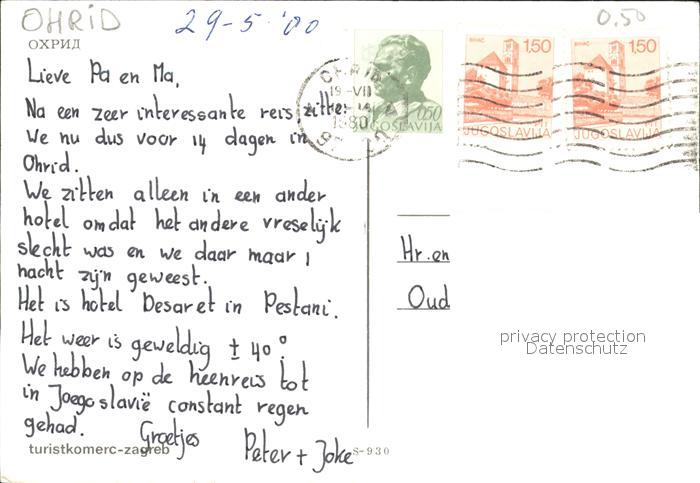 OHRID
29-5-'80
0.50
ОХРИД
Lieve Pa en Ma,
Na een zeer interessante reis zitten
We nu dus voor 14 dagen in
Ohrid.
We zitten alleen in een ander
hotel omdat het andere vreselijk
slecht was en we daar maar 1
nacht zijn geweest.
Het is hotel Desaret in Pestani.
Het weer is geweldig ± 40°.
We hebben op de heenreis tot
in Joegoslavië constant regen
gehad.
Groetjes
Peter + Joke
turistkomerc-zagreb
S-930
OHRID
19-VII
1980
0,50
JUGOSLAVIJA
BIHAĆ 1,50
JUGOSLAVIJA
BIHAĆ 1,50
JUGOSLAVIJA
Hr. en
Oud
privacy protection
Datenschutz